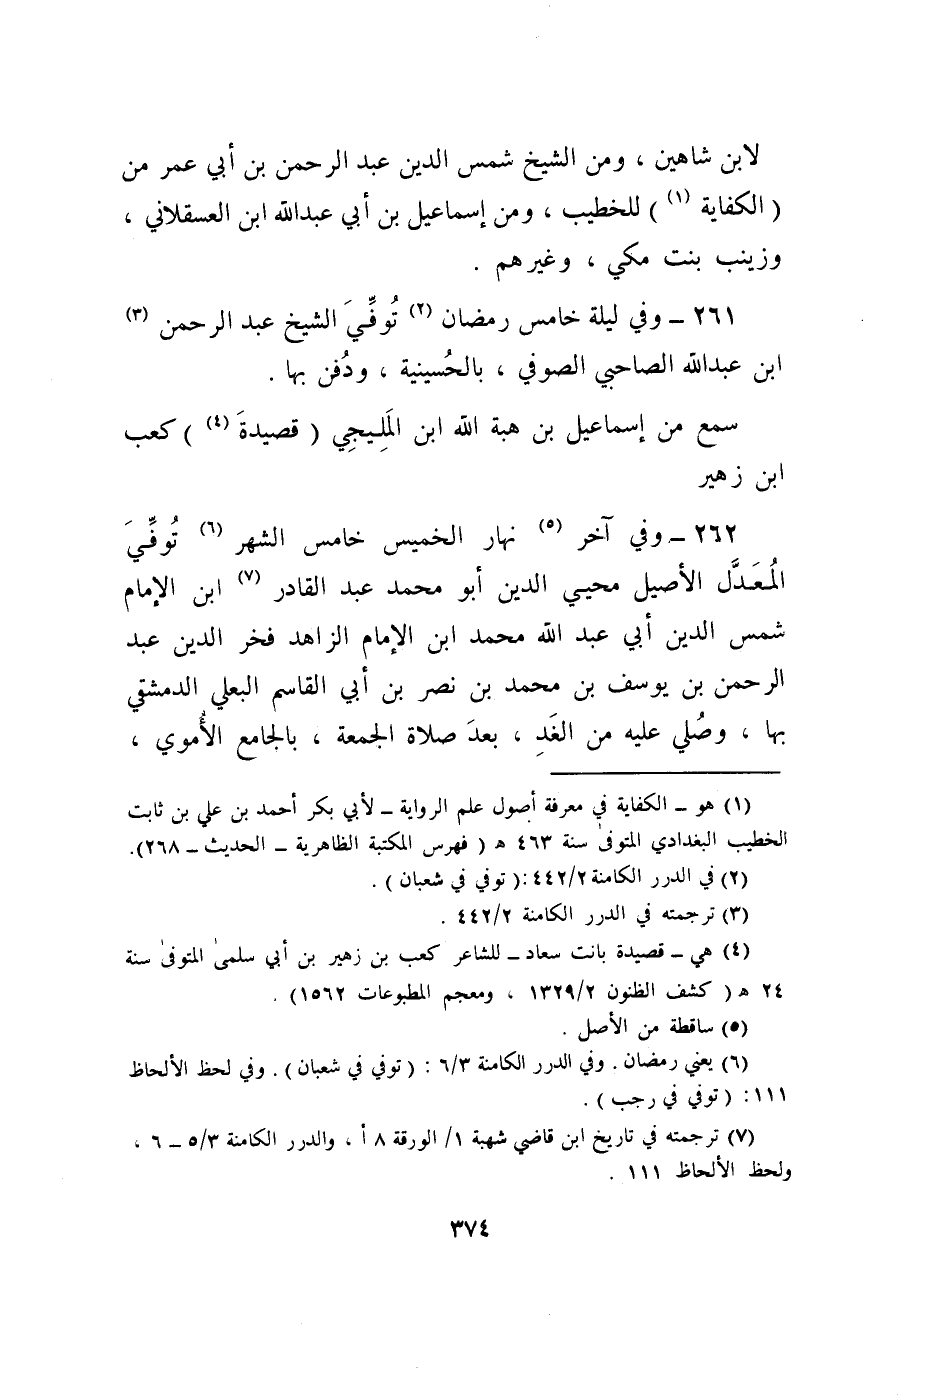 لابن شاهين ، ومن الشيخ شمس الدين عبد الرحمن بن أبي عمر من
( الكفاية (١) ) للخطيب ، ومن إسماعيل بن أبي عبدالله ابن العسقلاني ،
وزينب بنت مكي ، وغيرهم .
٢٦١ ــ وفي ليلة خامس رمضان (٢) تُوفِّيَ الشيخ عبد الرحمن (٣)
ابن عبدالله الصاحبي الصوفي ، بالحُسينية ، ودُفن بها .
سمع من إسماعيل بن هبة الله ابن المَلِيجِي ( قصيدةَ (٤) ) كعب
ابن زهير
٢٦٢ ــ وفي آخر (٥) نهار الخميس خامس الشهر (٦) تُوفِّيَ
المُعَدَّل الأصيل محيي الدين أبو محمد عبد القادر (٧) ابن الإمام
شمس الدين أبي عبد الله محمد ابن الإمام الزاهد فخر الدين عبد
الرحمن بن يوسف بن محمد بن نصر بن أبي القاسم البعلي الدمشقي
بها ، وصُلي عليه من الغَدِ ، بعدَ صلاة الجمعة ، بالجامع الأُموي ،
(١) هو ــ الكفاية في معرفة أصول علم الرواية ــ لأبي بكر أحمد بن علي بن ثابت
الخطيب البغدادي المتوفىٰ سنة ٤٦٣ ه ( فهرس المكتبة الظاهرية ــ الحديث ــ ٢٦٨).
(٢) في الدرر الكامنة ٤٤٢/٢ :( توفي في شعبان ) .
(٣) ترجمته في الدرر الكامنة ٤٤٢/٢ .
(٤) هي ــ قصيدة بانت سعاد ــ للشاعر كعب بن زهير بن أبي سلمىٰ المتوفىٰ سنة
٢٤ ه ( كشف الظنون ١٣٢٩/٢ ، ومعجم المطبوعات ١٥٦٢) .
(٥) ساقطة من الأصل .
(٦) يعني رمضان . وفي الدرر الكامنة ٦/٣ : ( توفي في شعبان ) . وفي لحظ الألحاظ
١١١: ( توفي في رجب ) .
(٧) ترجمته في تاريخ ابن قاضي شهبة ١/ الورقة ٨ أ ، والدرر الكامنة ٥/٣ ــ ٦ ،
ولحظ الألحاظ ١١١ .
٣٧٤